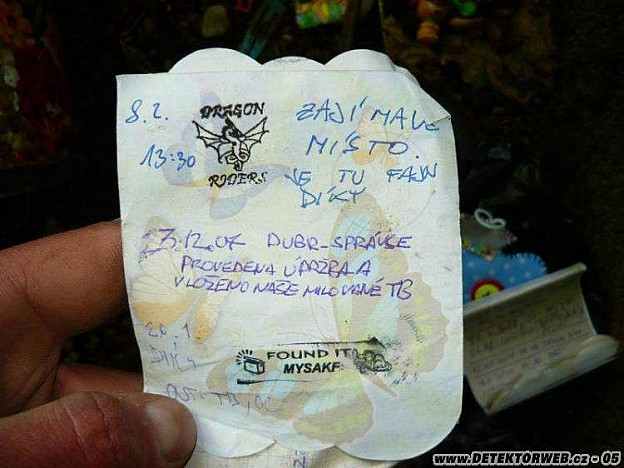 8.2.
13:30
DRAGON
RIDERS
ZAJÍMAVÉ
MÍSTO.
JE TU FAJN
DÍKY
23.12.07 DUBR-SPRÁVCE
PROVEDENA ÚDRŽBA A
VLOŽENO NAŠE MILOVANÉ TB
26.1
DÍKY
FOUND IT!
MYSAKF
OUT: TB, GC
WWW.DETEKTORWEB.cz - 05